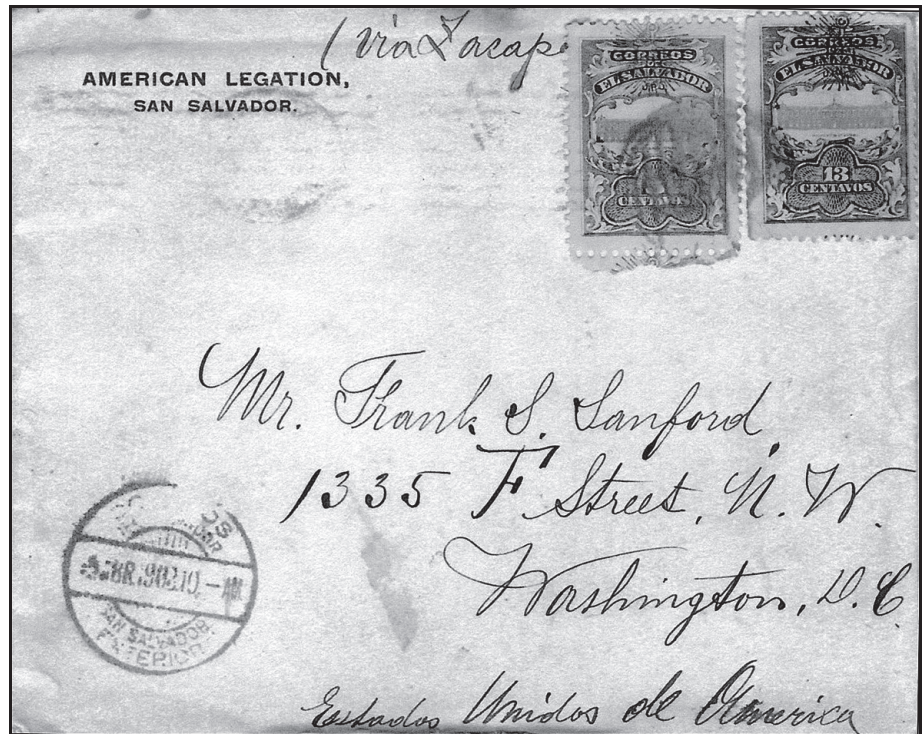 (via Zacap
AMERICAN LEGATION,
SAN SALVADOR.
CORREOS
DE
EL SALVADOR
CENTAVOS
CORREOS
DE
EL SALVADOR
13
CENTAVOS
Mr. Frank S. Sanford,
1335 F Street, N. W.
Washington, D. C.
Estados Unidos de America
SAN SALVADOR
EXTERIOR